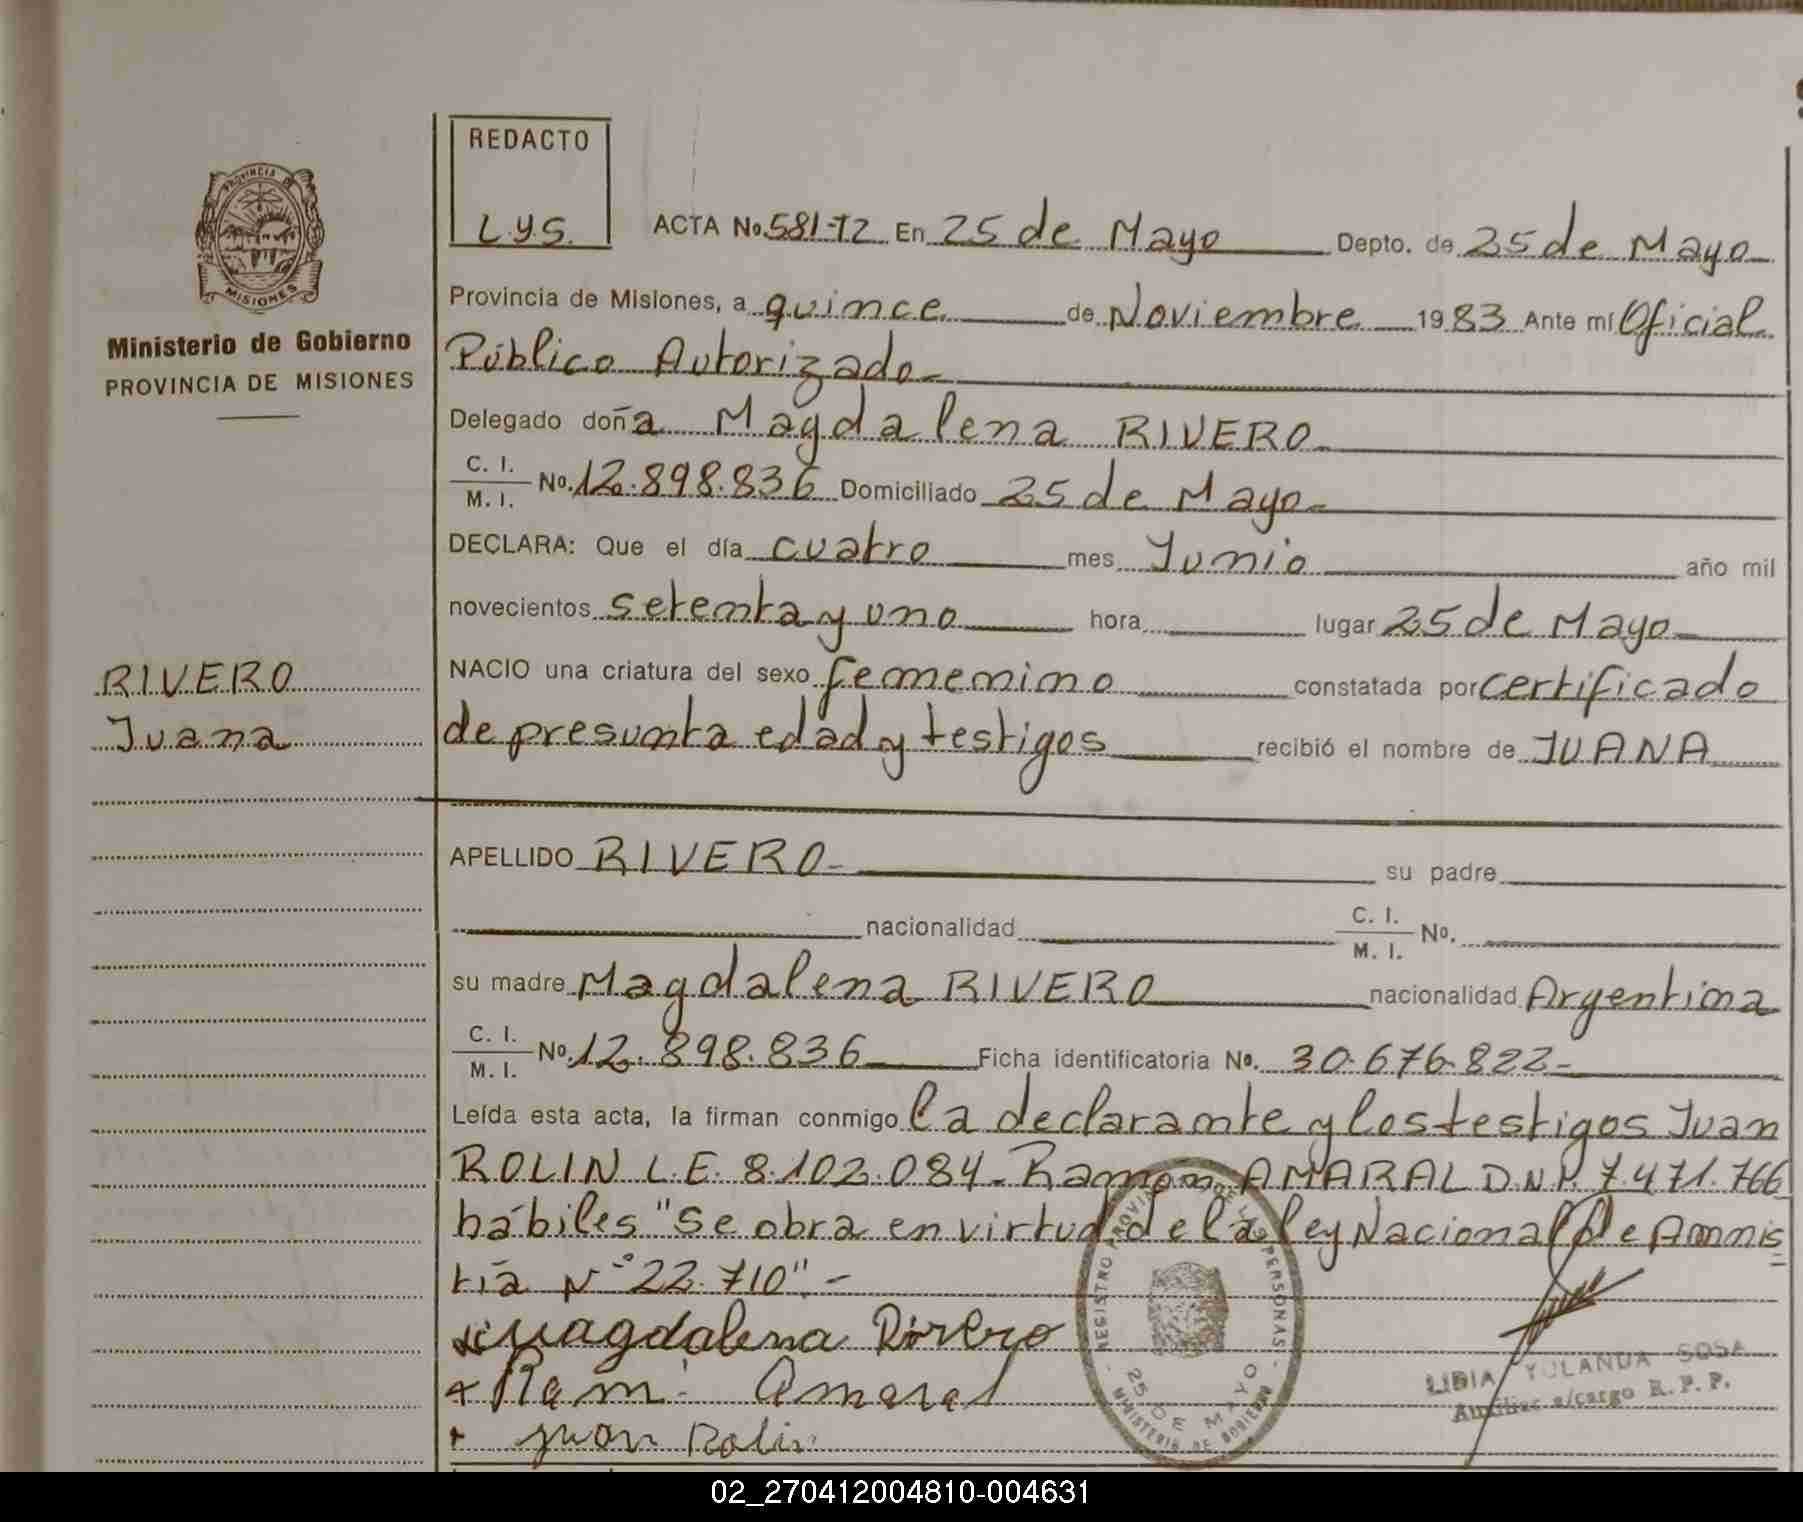 REDACTO
L.Y.S.
PROVINCIA DE
MISIONES
Ministerio de Gobierno
PROVINCIA DE MISIONES
ACTA No. 581-T2 En 25 de Mayo Depto. de 25 de Mayo
Provincia de Misiones, a quince de Noviembre 1983 Ante mí Oficial
Público Autorizado
Delegado doña Magdalena RIVERO
C. I.
M. I. No. 12.898.836 Domiciliado 25 de Mayo
DECLARA: Que el día cuatro mes Junio año mil
novecientos setenta y uno hora lugar 25 de Mayo
RIVERO
Juana
NACIO una criatura del sexo femenino constatada por certificado
de presunta edad y testigos recibió el nombre de JUANA
APELLIDO RIVERO su padre
nacionalidad C. I. M. I. No.
su madre Magdalena RIVERO nacionalidad Argentina
C. I.
M. I. No. 12.898.836 Ficha identificatoria No. 30.676.822
Leída esta acta, la firman conmigo la declarante y los testigos Juan
ROLIN L.E. 8.102.084 - Ramón AMARAL D.N.I. 7.471.766
hábiles "Se obra en virtud de la ley Nacional de Amnis
tía N° 22.710". -
Magdalena Rivero
Ram Amaral
Juan Rolin
REGISTRO PROVINCIAL DE LAS PERSONAS
25 DE MAYO
MINISTERIO DE GOBIERNO
LIDIA YOLANDA SOSA
Auxiliar a/cargo R. P. P.
02_270412004810-004631